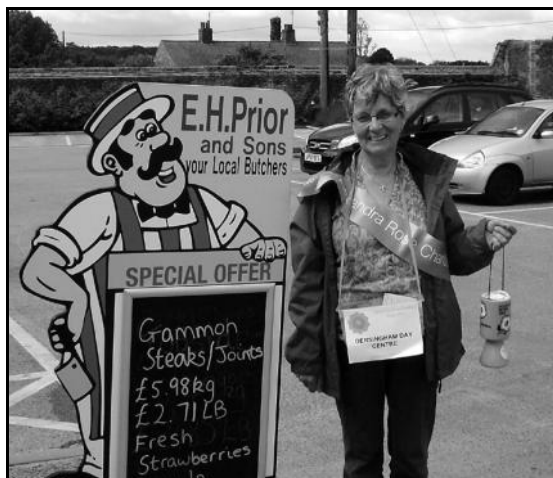 E.H.Prior
and Sons
your Local Butchers
SPECIAL OFFER
Gammon
Steaks/Joints
£5.98kg
£2.71LB
Fresh
Strawberries
DERSINGHAM DAY
CENTRE